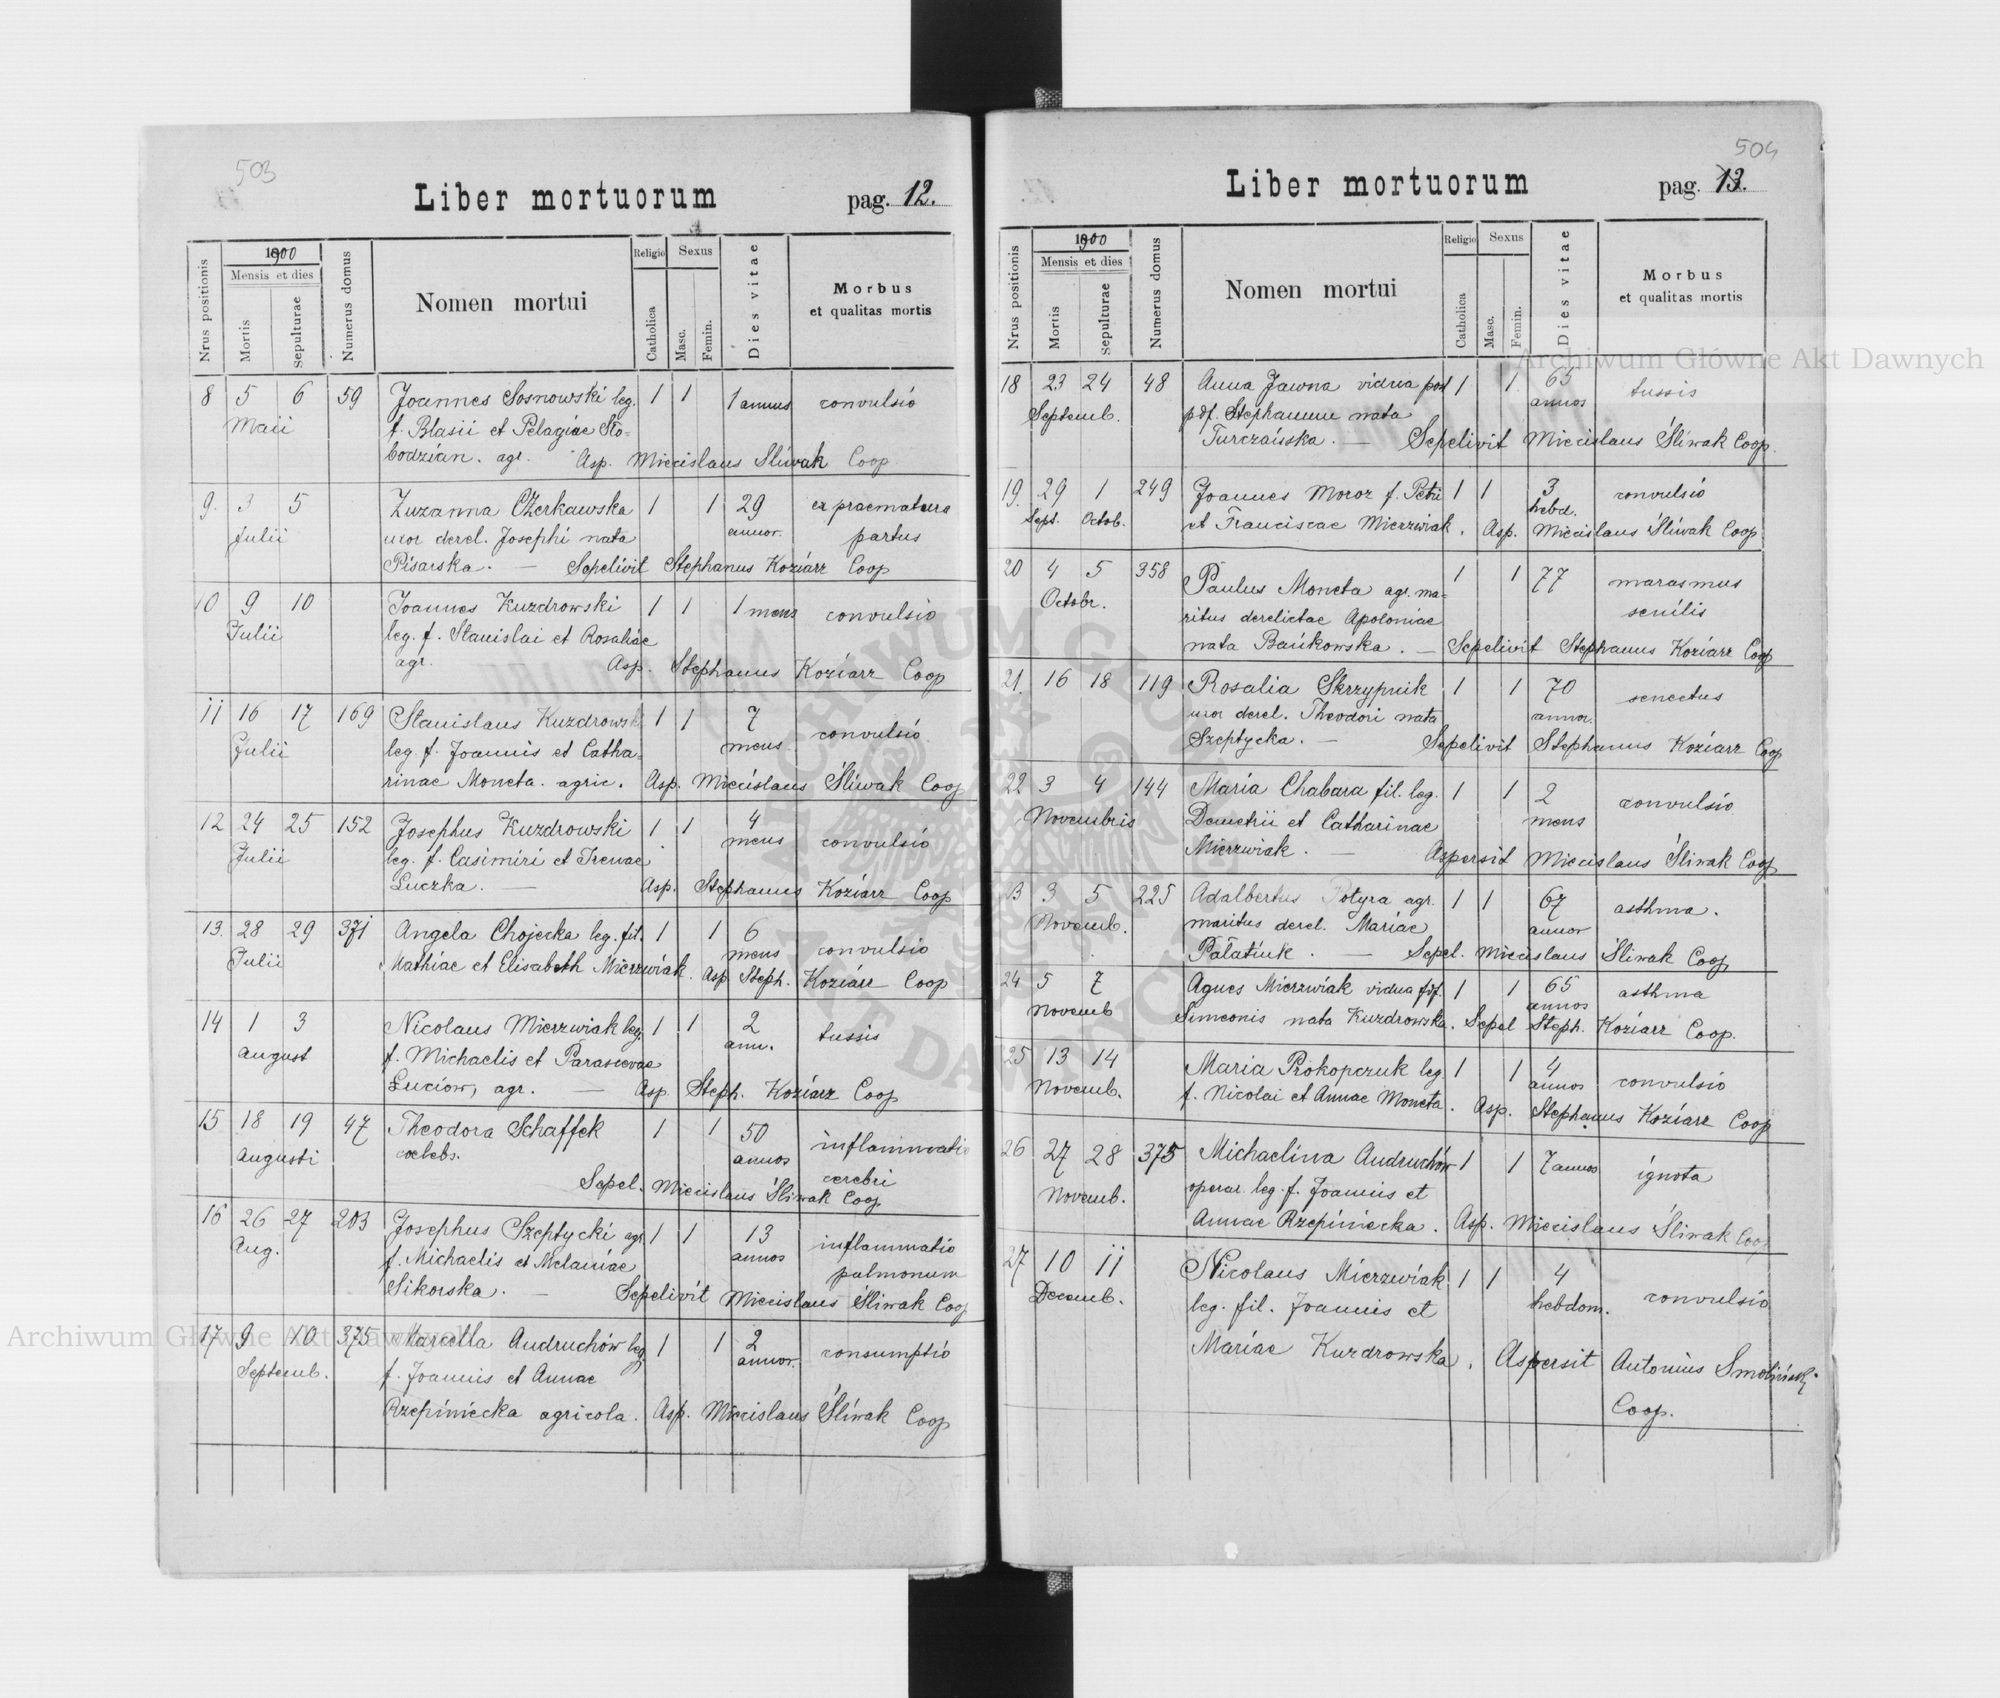 503
Liber mortuorum
pag. 12.
Nrus positionis
1900
Mensis et dies
Mortis
Sepulturae
Numerus domus
Nomen mortui
Religio
Catholica
Sexus
Masc.
Femin.
Dies vitae
Morbus
et qualitas mortis
8 5 6 59 Joannes Sosnowski leg. 1 1 1 annus convulsio
Maii f. Blasii et Pelagiae Sło-
bodzian. agr. Asp. Miecislaus Śliwak Coop
9. 3 5 Zuzanna Czerkawska 1 1 29 ex praematura
Julii uxor derel. Josephi nata annor. partus
Pisarska. — Sepelivit Stephanus Koziarz Coop
10 9 10 Joannes Kuzdrowski 1 1 1 mens convulsio
Julii leg. f. Stanislai et Rosaliae
agr. Asp. Stephanus Koziarz Coop
11 16 17 169 Stanislaus Kuzdrowski 1 1 7 convulsio
Julii leg. f. Joannis et Catha- mens
rinae Moneta. agric. Asp. Miecislaus Śliwak Coop
12 24 25 152 Josephus Kuzdrowski 1 1 4 mens convulsio
Julii leg. f. Casimiri et Irenae
Luczka. — Asp. Stephanus Koziarz Coop
13. 28 29 371 Angela Chojecka leg. fil. 1 1 6 mens convulsio
Julii Mathiae et Elisabeth Mierzwiak. Asp Steph. Koziarz Coop
14 1 3 Nicolaus Mierzwiak leg. 1 1 2 ann. tussis
August f. Michaelis et Parascevae
Luciow, agr. — Asp. Steph. Koziarz Coop
15 18 19 47 Theodora Schaffek 1 1 50 inflammatio
Augusti coelebs. annos cerebri
Sepel. Miecislaus Śliwak Coop
16 26 27 203 Josephus Szeptycki agr. 1 1 13 inflammatio
Aug. f. Michaelis et Melaniae annos pulmonum
Sikorska. — Sepelivit Miecislaus Śliwak Coop
17 9 10 375 Marcella Andruchów leg. 1 1 2 consumptio
Septemb. f. Joannis et Annae annor.
Rzepiniecka agricola. Asp. Miecislaus Śliwak Coop
504
Liber mortuorum
pag. 13.
Nrus positionis
1900
Mensis et dies
Mortis
Sepulturae
Numerus domus
Nomen mortui
Religio
Catholica
Sexus
Masc.
Femin.
Dies vitae
Morbus
et qualitas mortis
18 23 24 48 Anna Jawna vidua post 1 1 65 tussis
Septemb. pdf. Stephanum nata annos
Turczańska. — Sepelivit Miecislaus Śliwak Coop.
19. 29 1 249 Joannes Moroz f. Petri 1 1 3 hebd. convulsio
Sept. Octob. et Franciscae Mierzwiak. Asp. Miecislaus Śliwak Coop
20 4 5 358 Paulus Moneta agr. ma- 1 1 77 marasmus
Octobr. ritus derelictae Apoloniae senilis
nata Bańkowska. — Sepelivit Stephanus Koziarz Coop
21. 16 18 119 Rosalia Skrzypnik 1 1 70 senectus
uxor derel. Theodori nata annor.
Szeptycka. — Sepelivit Stephanus Koziarz Coop
22 3 4 144 Maria Chabara fil. leg. 1 1 2 convulsio
Novembris Demetrii et Catharinae mens
Mierzwiak. — Aspersit Miecislaus Śliwak Coop
23 3 5 225 Adalbertus Potyra agr. 1 1 67 asthma.
Novemb. maritus derel. Mariae annor
Palatiuk. — Sepel. Miecislaus Śliwak Coop
24 5 7 Agnes Mierzwiak vidua pdf. 1 1 65 asthma
Novemb Simeonis nata Kuzdrowska. Sepel annos Steph. Koziarz Coop.
25 13 14 Maria Prokopczuk leg. 1 1 4 annos convulsio
Novemb. f. Nicolai et Annae Moneta. Asp. Stephanus Koziarz Coop
26 27 28 375 Michaelina Andruchów 1 1 7 annos ignota
Novemb. operar. leg. f. Joannis et
Annae Rzepiniecka. Asp. Miecislaus Śliwak Coop
27 10 11 Nicolaus Mierzwiak 1 1 4 convulsio
Decemb. leg. fil. Joannis et hebdom.
Mariae Kuzdrowska. Aspersit Antonius Smoliński
Coop.
Archiwum Główne Akt Dawnych
Archiwum Główne Akt Dawnych
ARCHIWUM GŁÓWNE AKT DAWNYCH